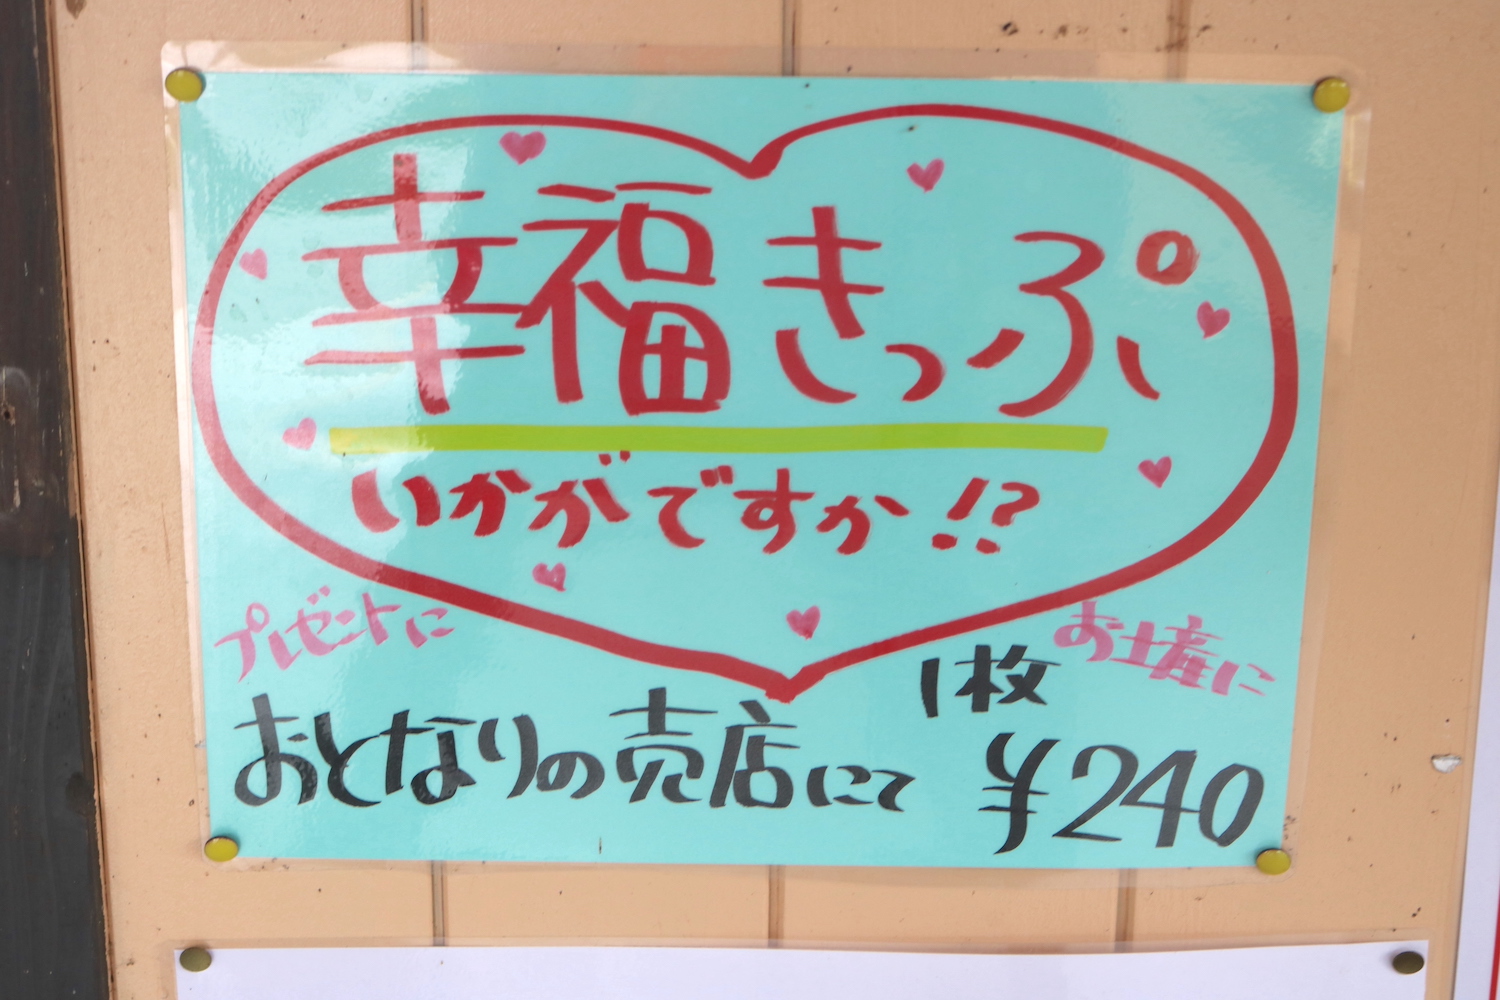 幸福きっぷ
いかがですか!?
プレゼントに
お土産に
おとなりの売店にて
1枚
¥240